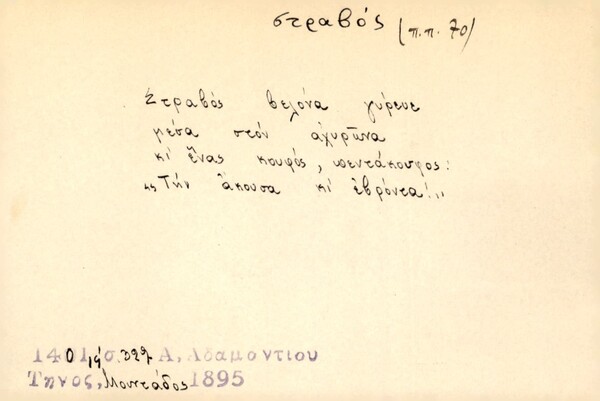 στραβός (π.π. 70)
Στραβός βελόνα γύρευε
μέσα στόν ἀχυρῶνα
κι' ἕνας κουφός, πεντάκουφος:
„Τήν ἄκουσα κι' ἐβρόντα!„
1401, σ. 322 Α. Αδαμαντίου
Τηνος, Μουντάδος 1895